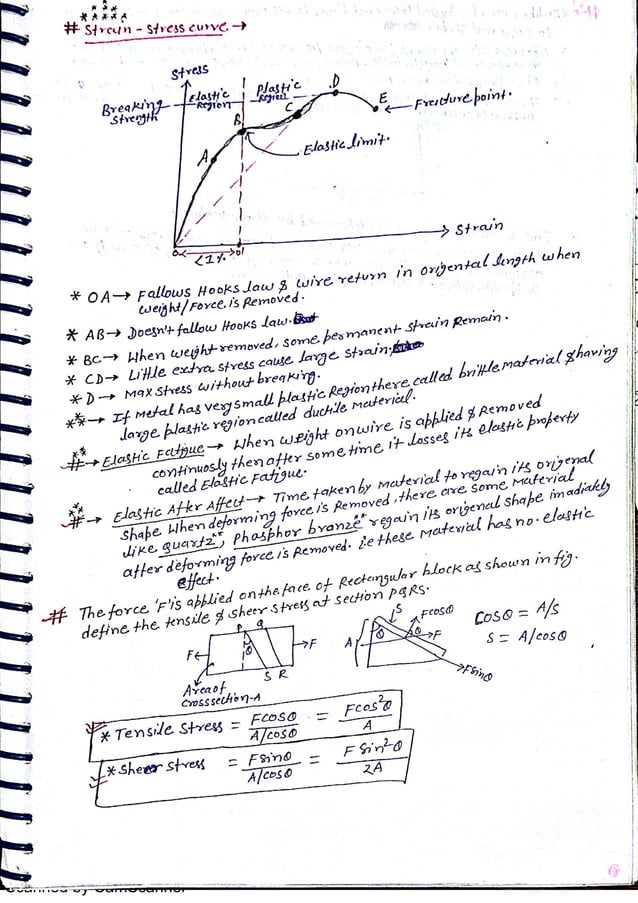 *****
# Strain - Stress curve →
Stress
Breaking Strength
Elastic Region
Plastic Region
D
E
← Fracture point.
C
B
Elastic limit.
A
O
<1%
O'
→ Strain
* OA → Fallows Hooks law & wire return in origental length when
weight/Force is Removed.
* AB → Doesn't fallow Hooks law.
* BC → When weight removed, some permanent strain Remain.
* CD → Little extra stress cause large strain.
* D → Max stress without breaking.
** → If Metal has very small plastic Region there called brittle material & having
large plastic region called ductile Material.
# → Elastic Fatigue → When weight on wire is applied & Removed
continuosly then after some time it losses its elastic property
called Elastic Fatigue.
# → Elastic After Affect → Time taken by Material to regain its origenal
shape When deforming force is Removed, there are some Material
like quartz**, Phosphor branze** regain its origenal shape imadiately
after deforming force is Removed. i.e these Material has no. elastic
effect.
# The force 'F' is applied on the face of Rectangular block as shown in fig.
define the tensile & sheer stress at section PQRS.
P Q
F← θ →F
S R
Area of
crosssection-A
S
Fcosθ
A θ θ →F
Fsinθ
cosθ = A/S
S = A/cosθ
* Tensile Stress = Fcosθ / A/cosθ = Fcos²θ / A
* Sheer stress = Fsinθ / A/cosθ = F Sin2θ / 2A
Scanned by CamScanner